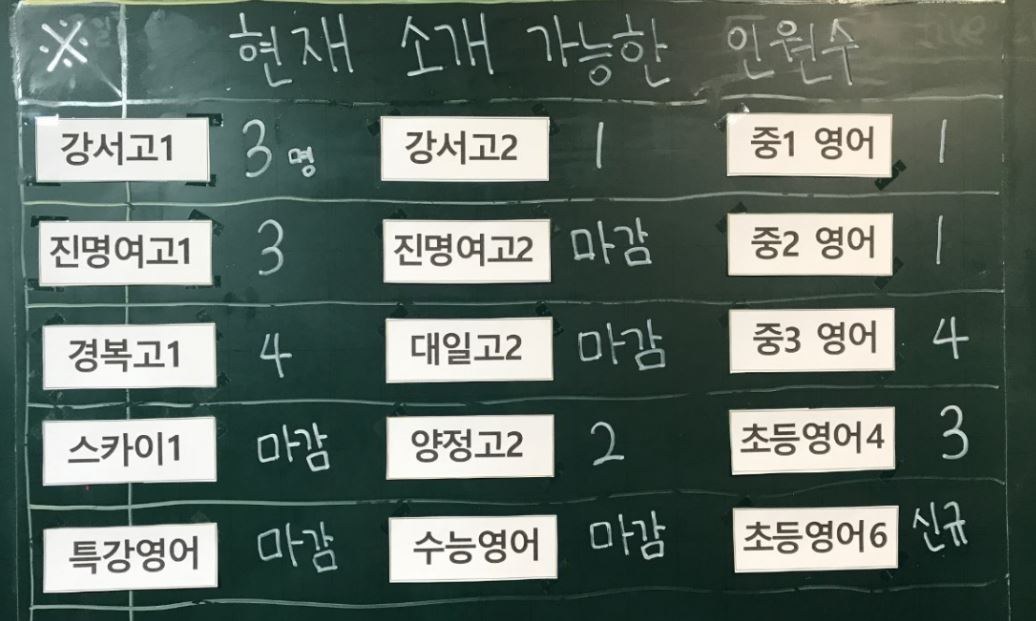 ※ 현재 소개 가능한 인원수
강서고1 3명 강서고2 1 중1 영어 1
진명여고1 3 진명여고2 마감 중2 영어 1
경복고1 4 대일고2 마감 중3 영어 4
스카이1 마감 양정고2 2 초등영어4 3
특강영어 마감 수능영어 마감 초등영어6 신규